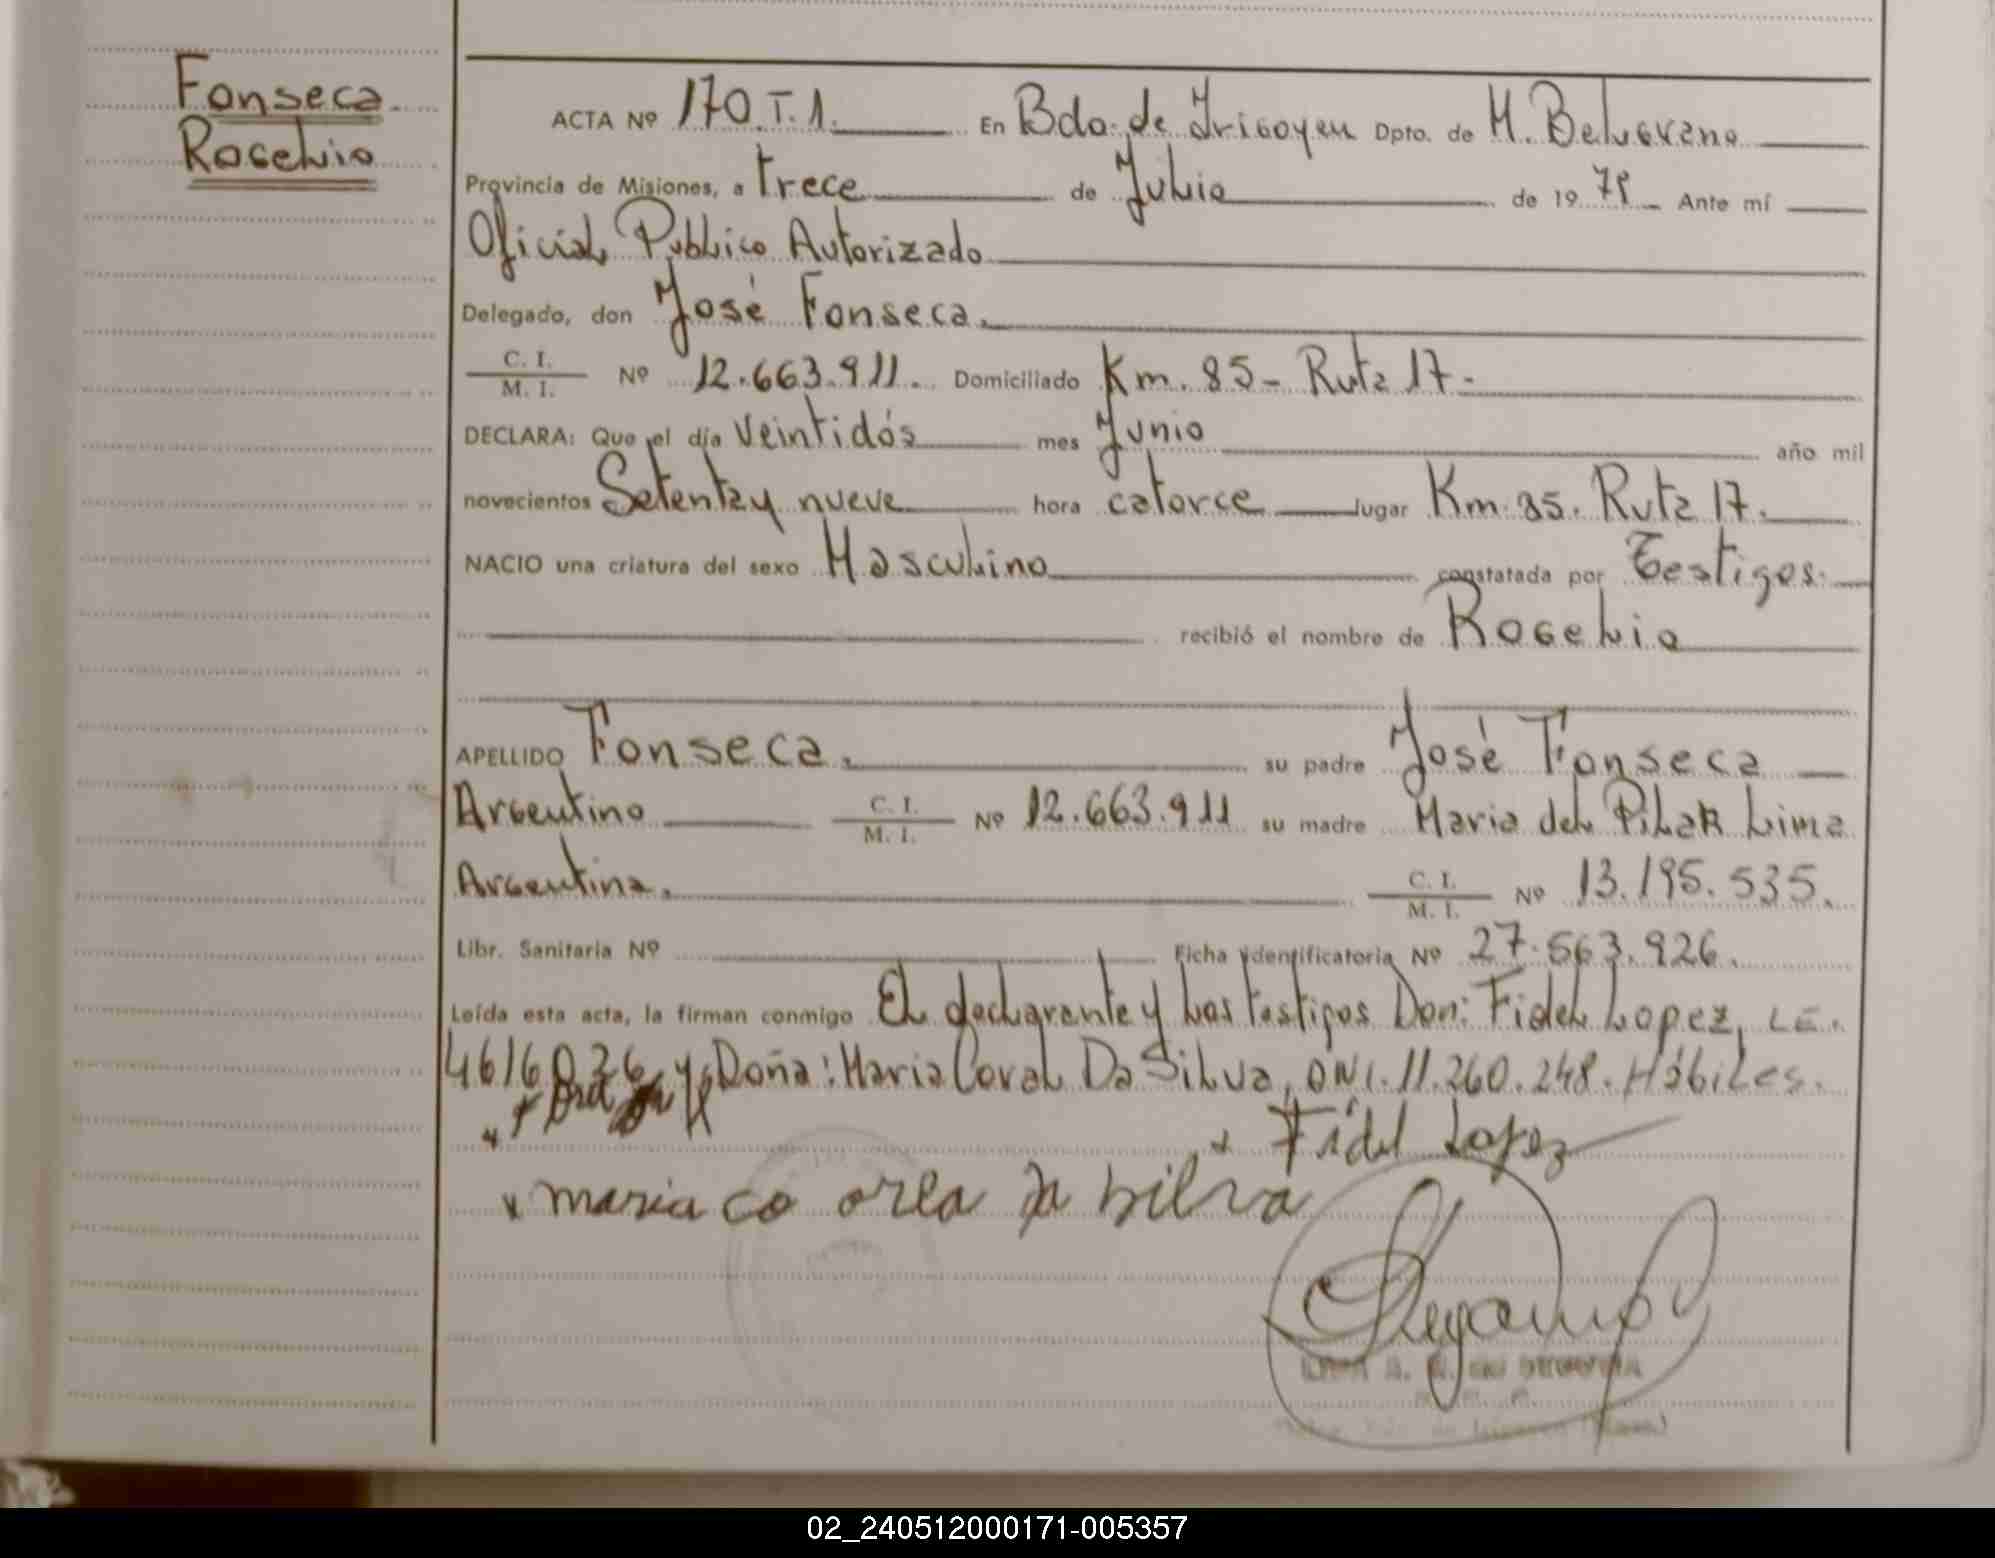 Fonseca
Rogelio
ACTA Nº 170.T.1. En Bdo. de Irigoyen Dpto. de M. Belgrano
Provincia de Misiones, a trece de Julio de 1979 Ante mí
Oficial Publico Autorizado
Delegado, don José Fonseca.
C. I. / M. I. Nº 12.663.911. Domiciliado Km. 85- Ruta 17.-
DECLARA: Que el día Veintidós mes Junio año mil
novecientos Setenta y nueve hora catorce lugar Km 85. Ruta 17.
NACIO una criatura del sexo Masculino constatada por Testigos.
recibió el nombre de Rogelio
APELLIDO Fonseca. su padre José Fonseca
Argentino C. I. / M. I. Nº 12.663.911 su madre Maria del Pilar Lima
Argentina. C. I. / M. I. Nº 13.195.535.
Libr. Sanitaria Nº Ficha identificatoria Nº 27.563.926.
Leída esta acta, la firman conmigo El declarante y los testigos Don: Fidel Lopez, L.E.
4616036 y Doña: Maria Coral Da Silva, DNI. 11.260.248. Hábiles.
x Fidel Lopez
x maria co orea da silva
02_240512000171-005357